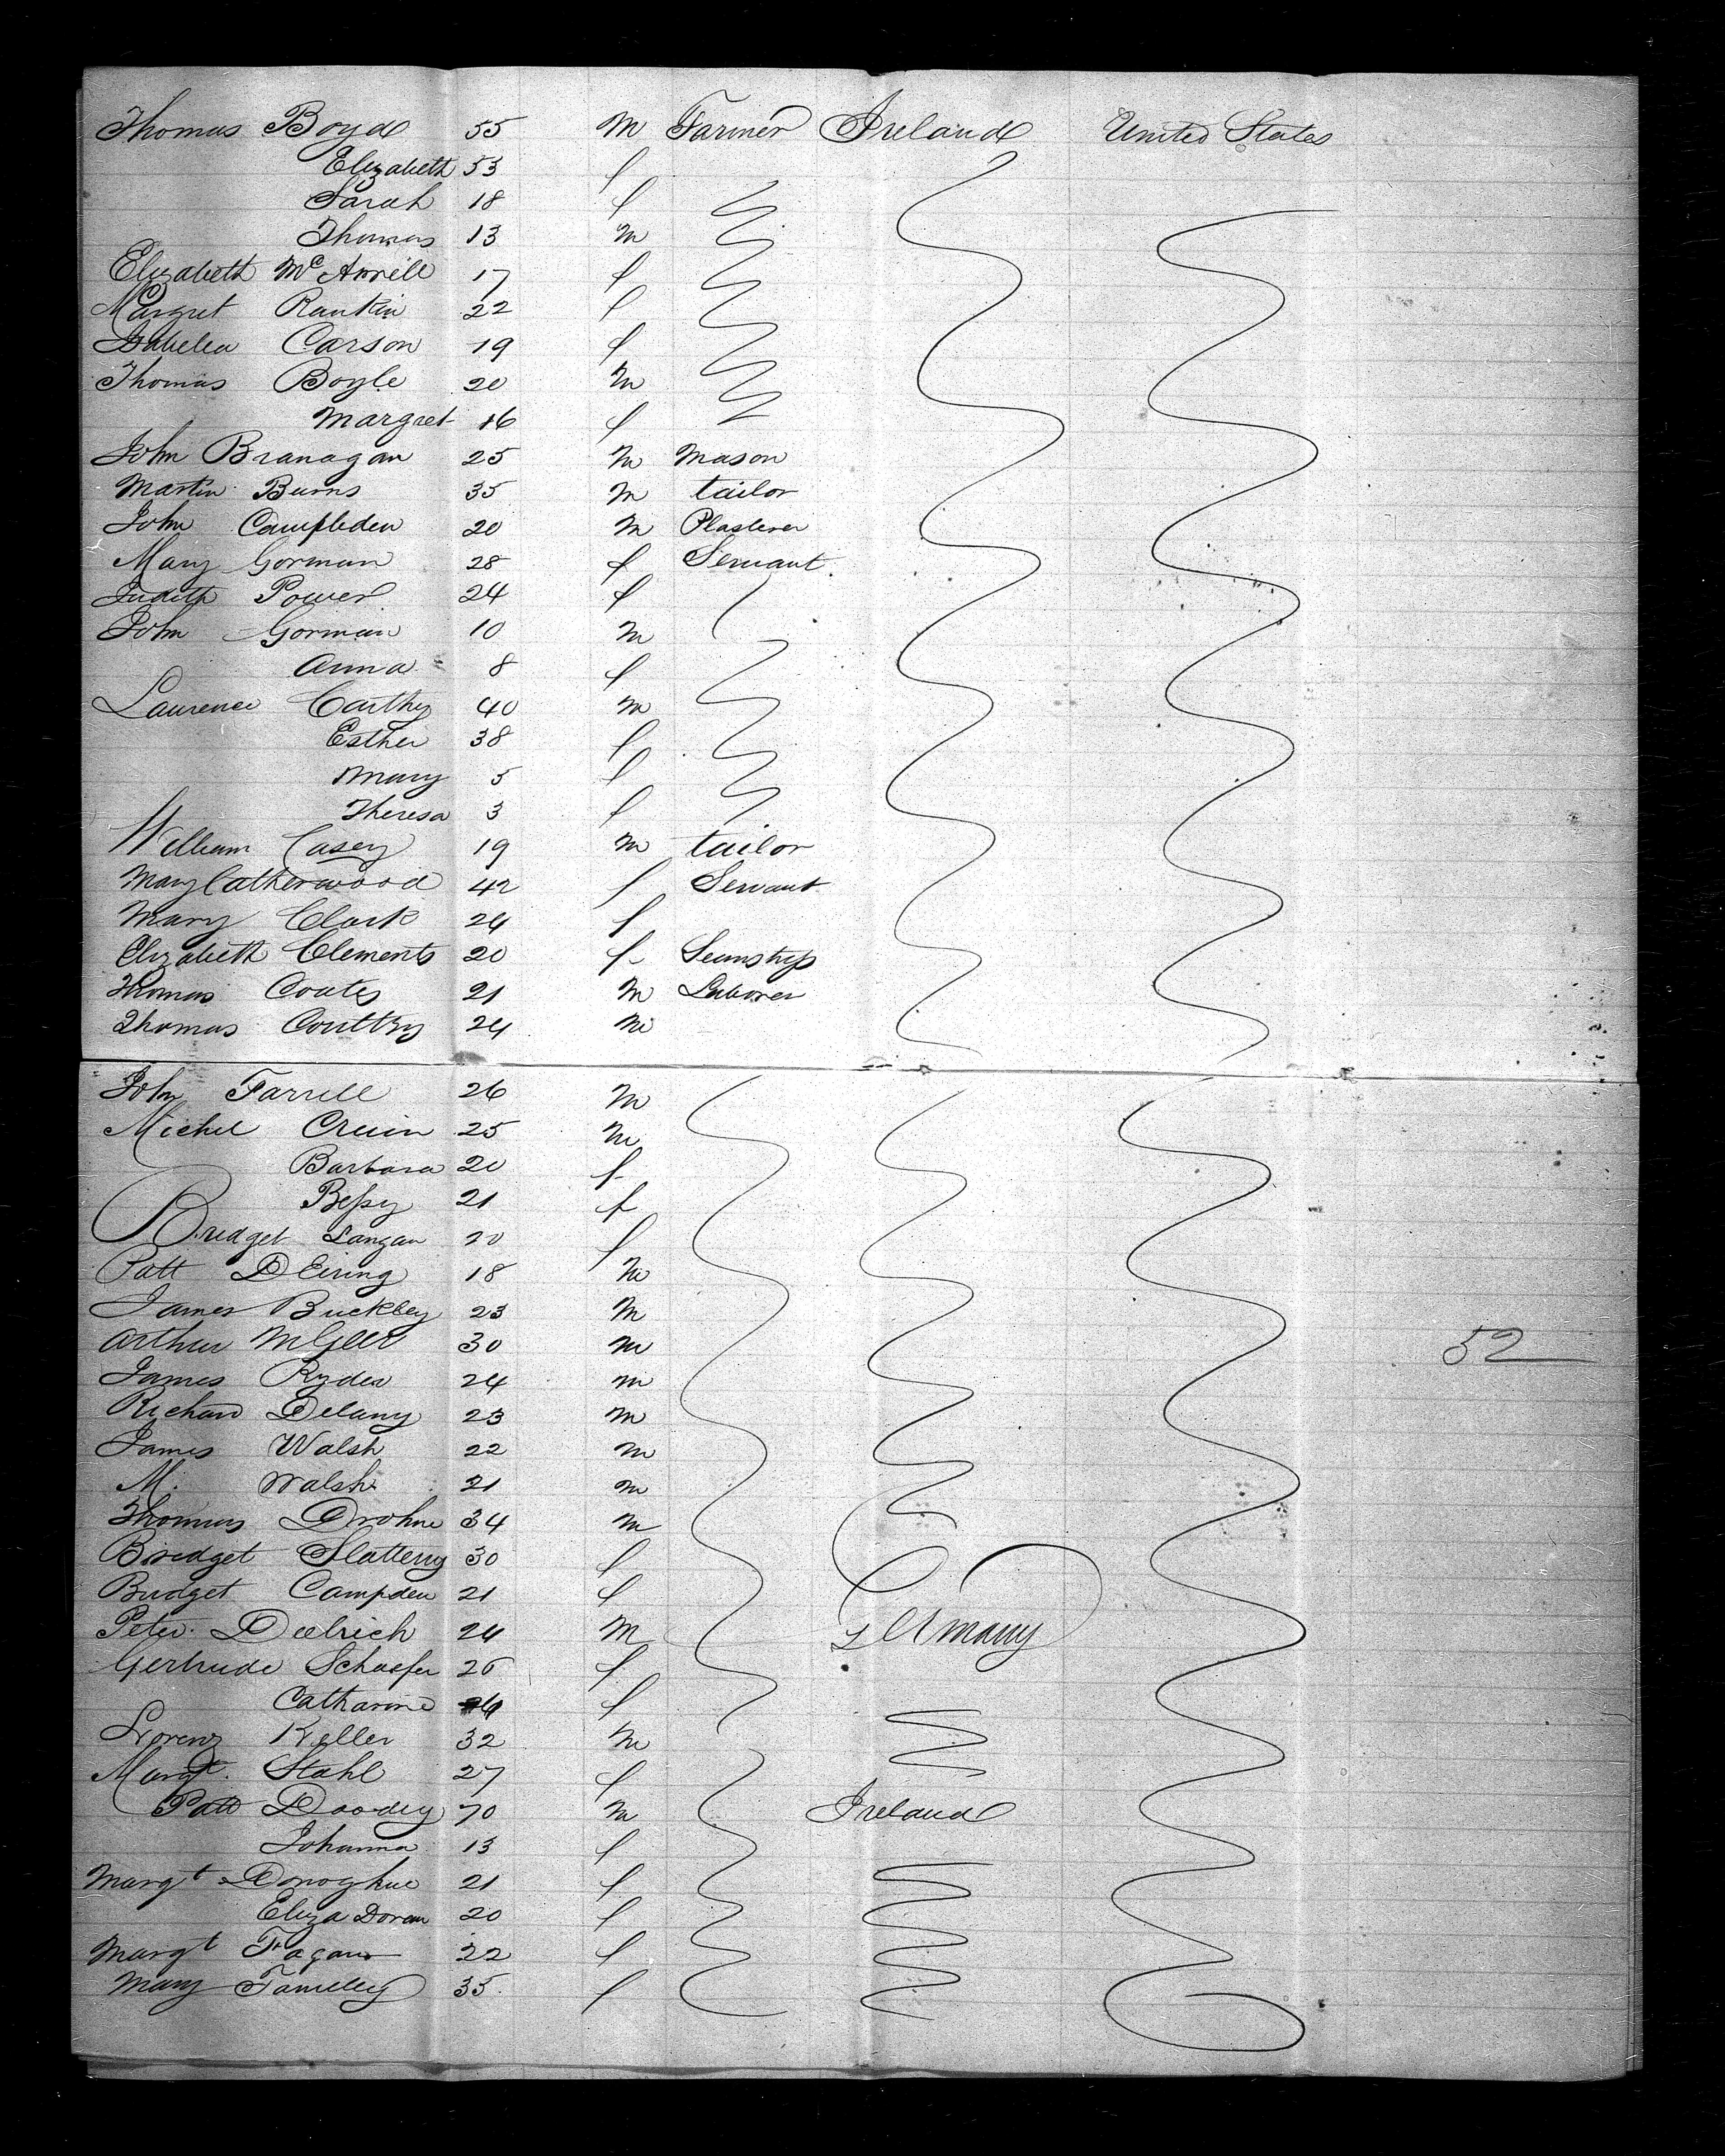 Thomas Boyd 55 M Farmer Ireland United States
Elizabeth 53 f
Sarah 18 f
Thomas 13 m
Elizabeth Mc 17 f
Margret Rankin 22 f
Isabella Carson 19 f
Thomas Boyle 20 m
Margret 16 f
John Branagan 25 m Mason
Martin Burns 35 m tailor
John Campbden 20 m Plasterer
Mary Gorman 28 f Servant
Judith Power 24 f
John Gorman 10 m
Anna 8 f
Laurence Carthy 40 m
Esther 38 f
Mary 5 f
Theresa 3 f
William Casey 19 m tailor
Mary Catherwood 42 f Servant
Mary Clark 24 f
Elizabeth Clements 20 f
Thomas Coates 21 m Laborer
Thomas Coultry 24 m
John Farrell 26 m
Michel 25 m
Barbara 20 f
Bessy 21 f
Bridget Langan 20 f
Patt 18 m
James Buckley 23 m
Arthur McGeer 30 m
James Ryder 24 m
Richard Delany 23 m
James Walsh 22 m
M. Walsh 21 m
Thomas Drohne 34 m
Bridget Slattery 30 f
Bridget Campden 21 f
Peter Deelrich 24 m Germany
Gertrude Schaefer 26 f
Catharine f
Lorenz Keller 32 m
Margt. Stahl 27 f
Patt Doodey 70 m Ireland
Johanna 13 f
Margt Donoghue 21 f
Eliza Doran 20 f
Margt Fagan 22 f
Mary 35 f
52